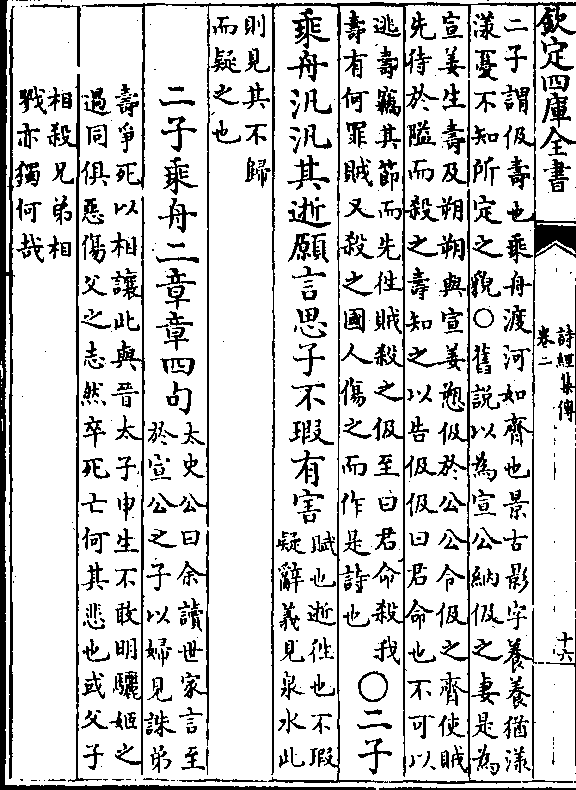 欽定四庫全書
詩經集傳
卷二
十六
二子謂伋壽也乘舟渡河如齊也景古影字養養猶漾
漾憂不知所定之貌○舊說以為宣公納伋之妻是為
宣姜生壽及朔朔與宣姜愬伋於公公令伋之齊使賊
先待於隘而殺之壽知之以告伋伋曰君命也不可以
逃壽竊其節而先往賊殺之伋至曰君命殺我
壽有何罪賊又殺之國人傷之而作是詩也
○二子
乘舟汎汎其逝願言思子不瑕有害
賦也逝往也不瑕
疑辭義見泉水此
則見其不歸
而疑之也
二子乘舟二章章四句
太史公曰余讀世家言至
於宣公之子以婦見誅弟
壽爭死以相讓此與晉太子申生不敢明驪姬之
過同俱惡傷父之志然卒死亡何其悲也或父子
相殺兄弟相
戮亦獨何哉